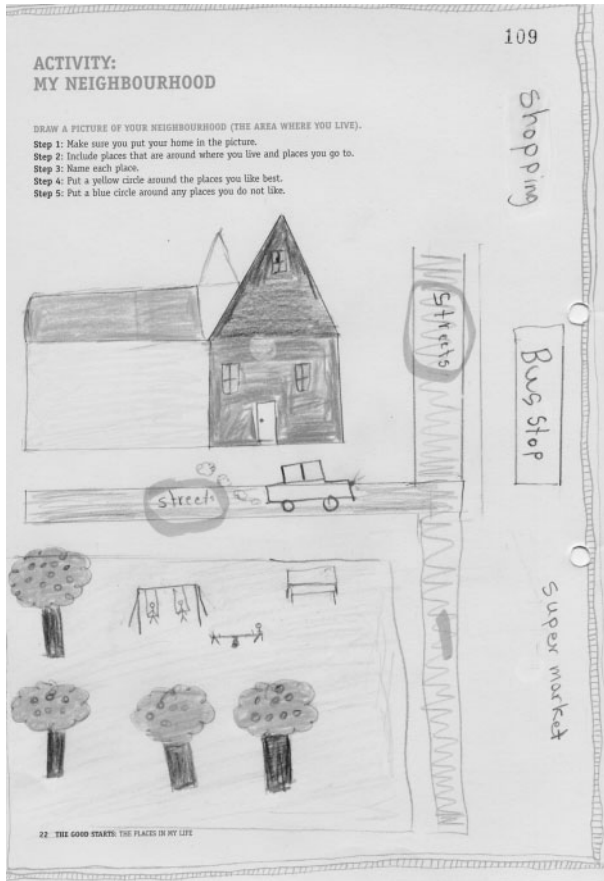 109
ACTIVITY:
MY NEIGHBOURHOOD
DRAW A PICTURE OF YOUR NEIGHBOURHOOD (THE AREA WHERE YOU LIVE).
Step 1: Make sure you put your home in the picture.
Step 2: Include places that are around where you live and places you go to.
Step 3: Name each place.
Step 4: Put a yellow circle around the places you like best.
Step 5: Put a blue circle around any places you do not like.
Shopping
Streets
Bus Stop
streets
super market
22 THE GOOD STARTS: THE PLACES IN MY LIFE